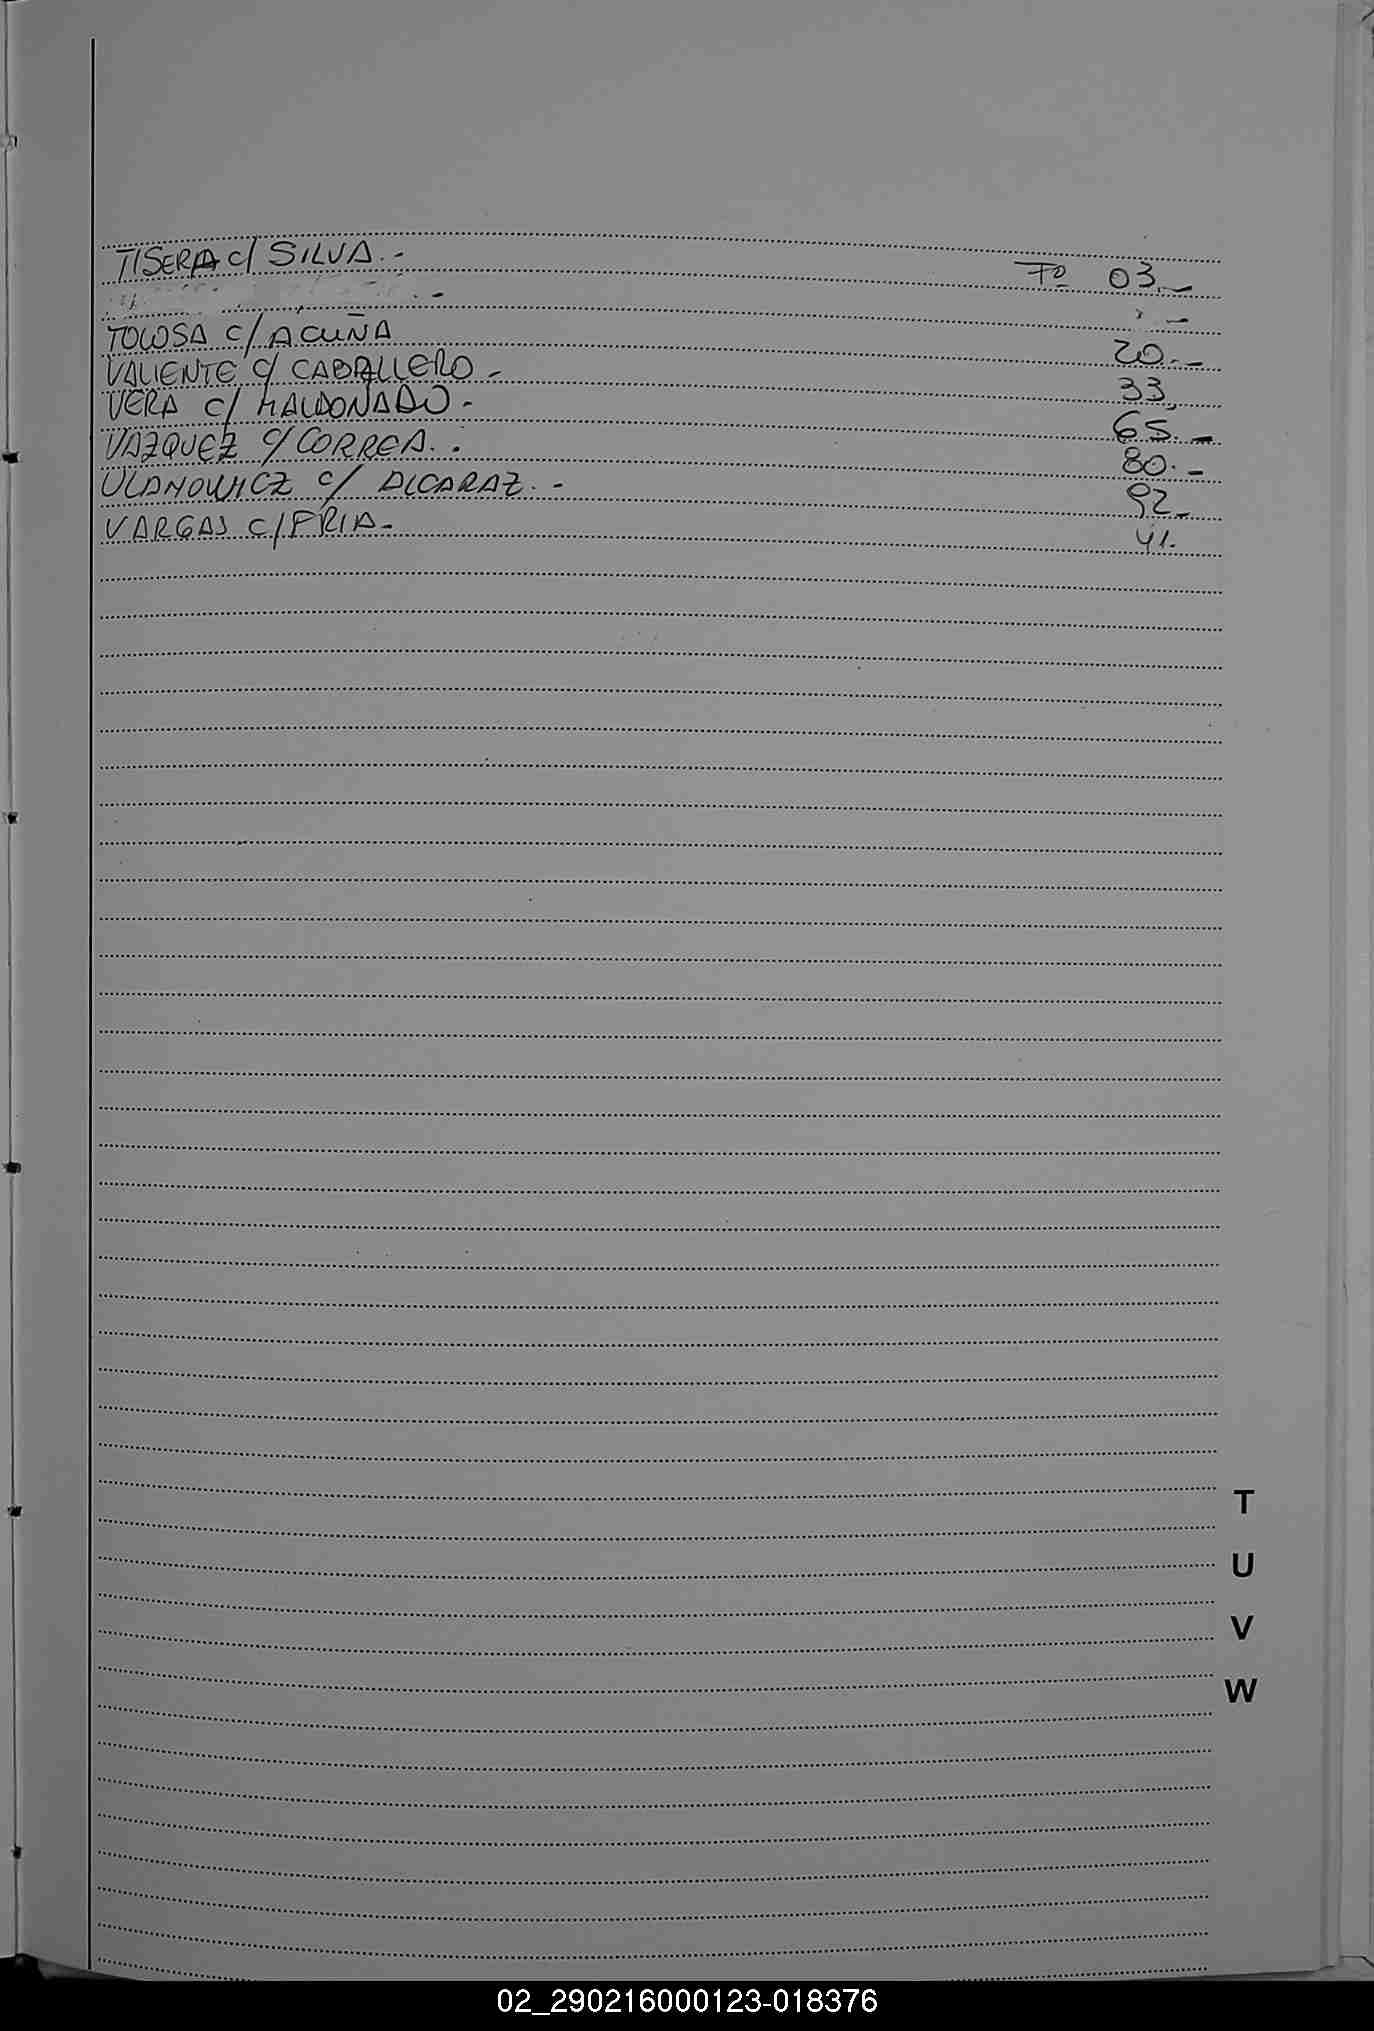 TISERA c/ SILVA.- Fº 03.-
TOLOSA c/ ACUÑA 20.-
VALIENTE c/ CABALLERO - 33.
VERA c/ MALDONADO.- 65.-
VAZQUEZ c/ CORREA.. 80.-
ULANOWICZ c/ ALCARAZ.- 92.-
VARGAS c/ FRIA.- 41.
T
U
V
W
02_290216000123-018376